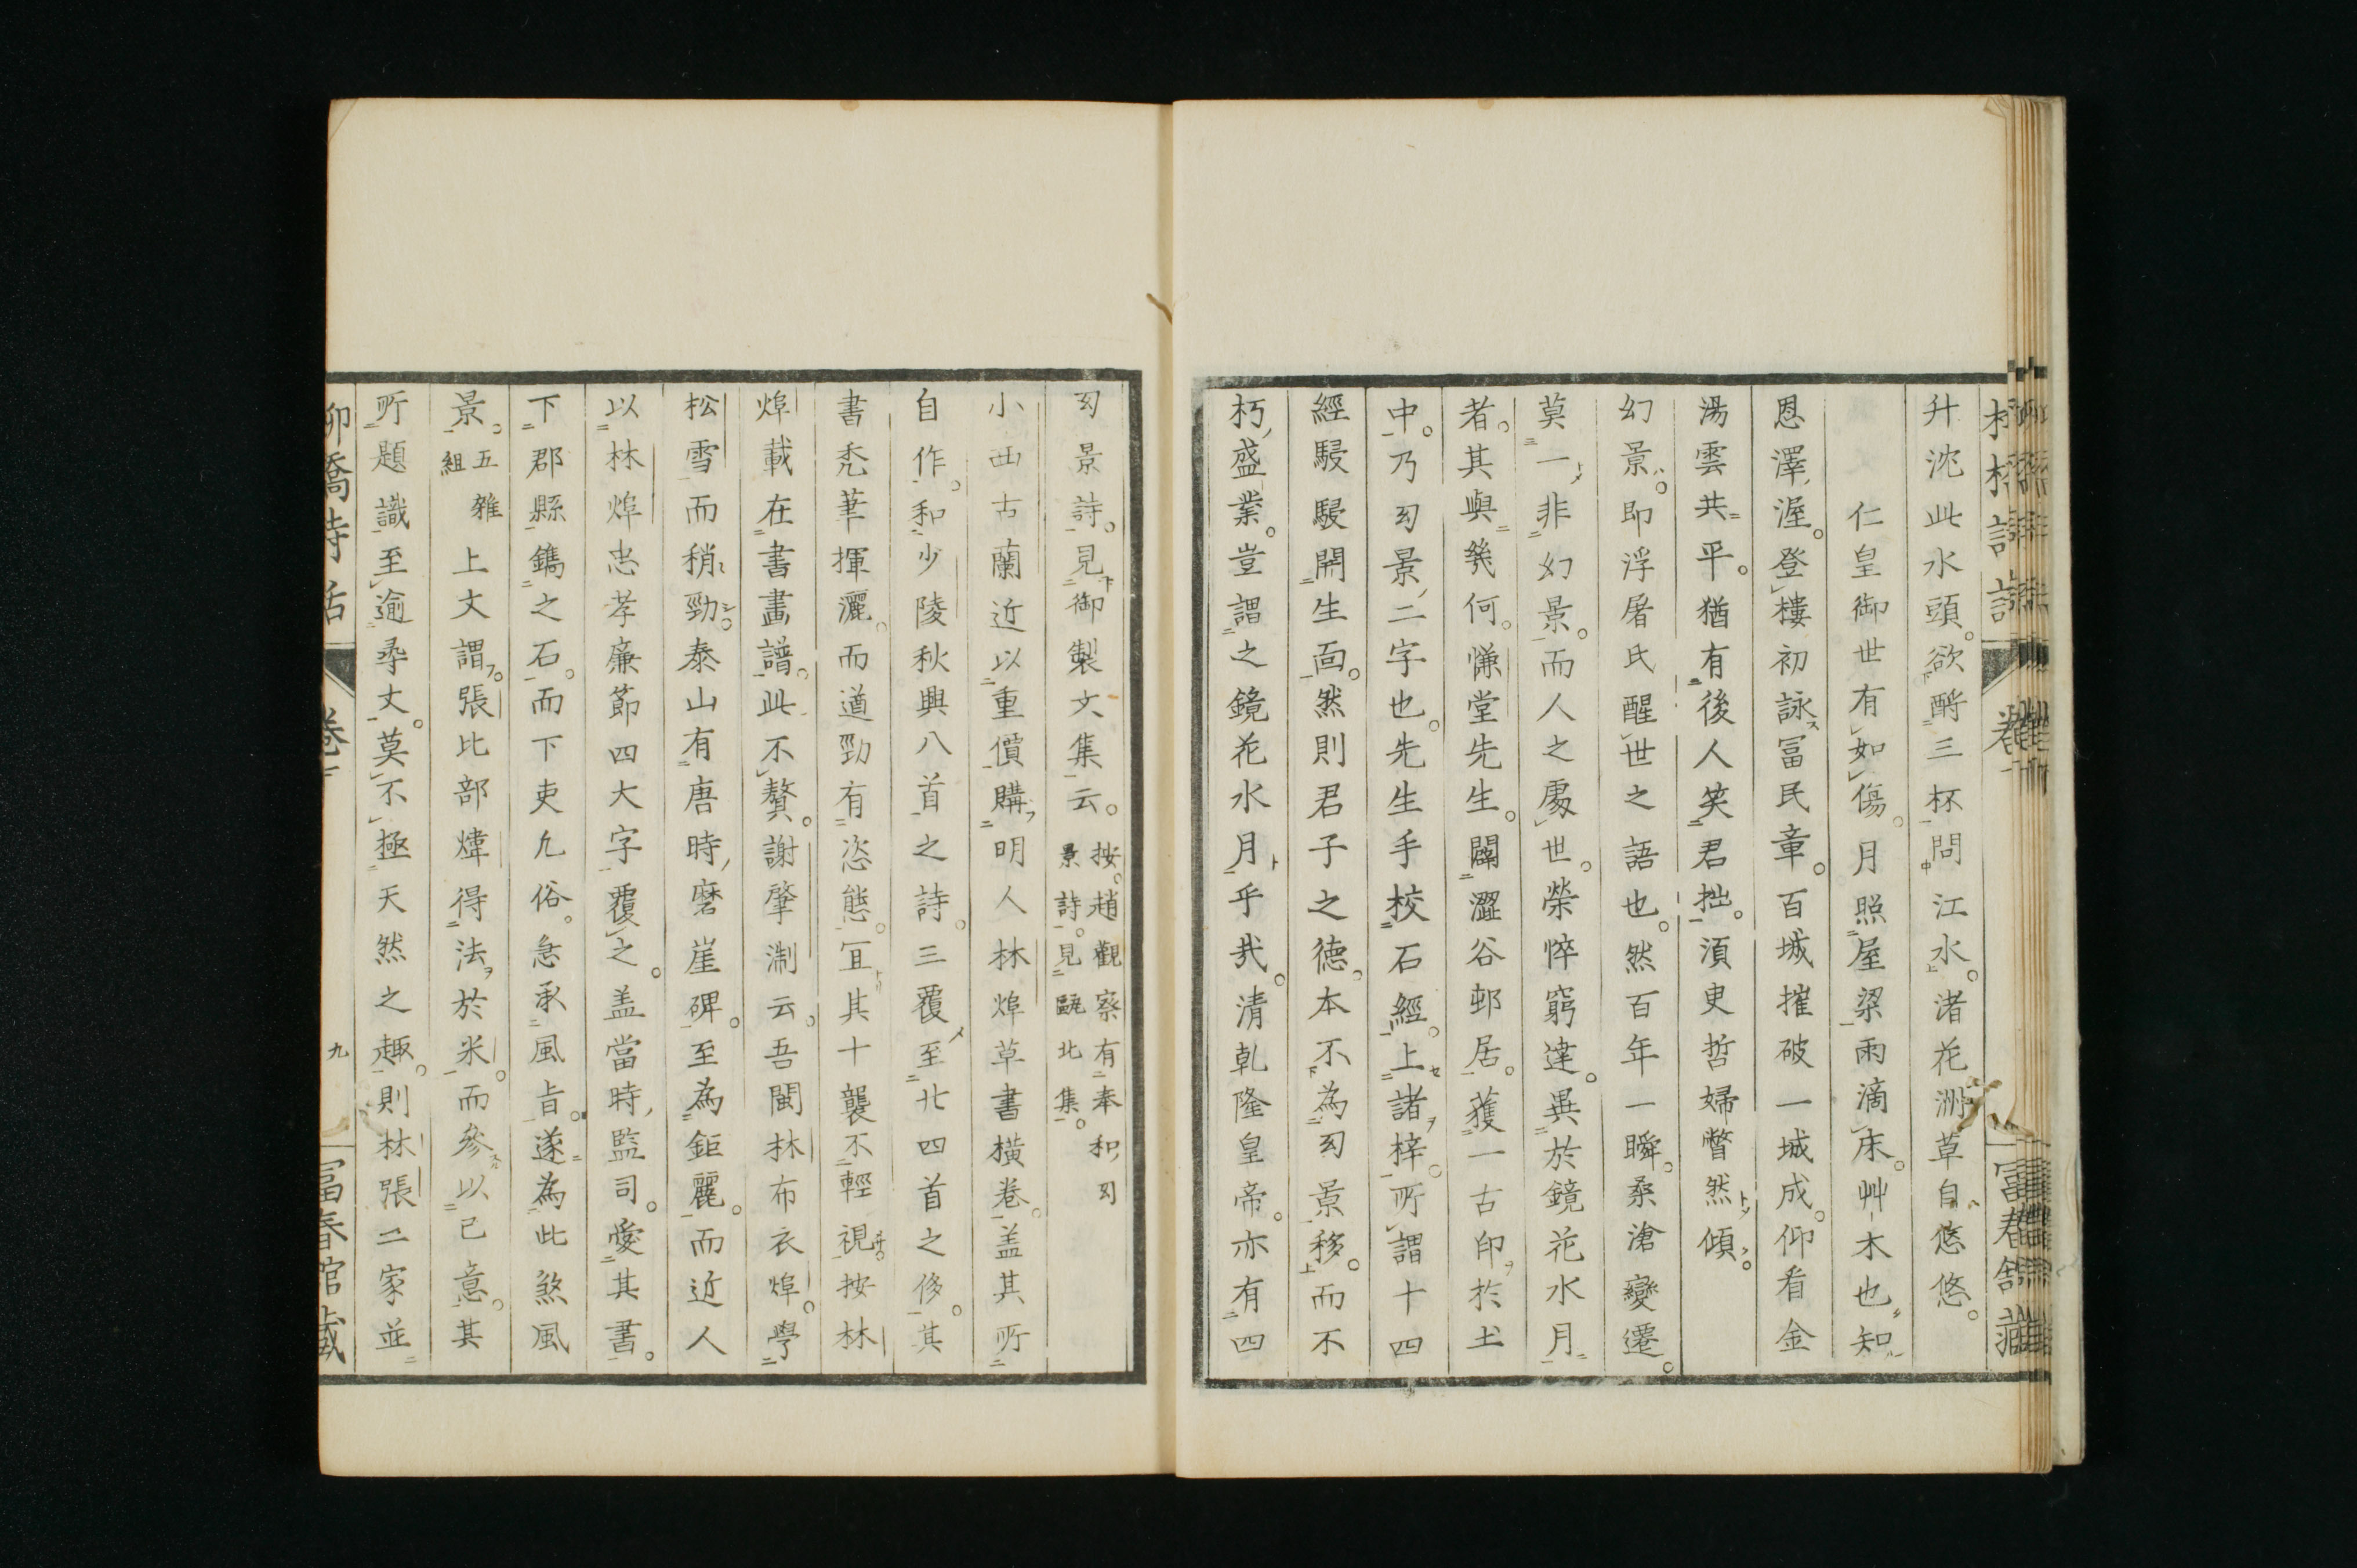 升沈此水頭。欲酹三杯問江水。渚花洲草自悠悠。
仁皇御世有如傷。月照屋梁雨滴床。艸木也知
恩澤渥。登樓初詠冨民章。百城摧破一城成。仰看金
湯雲共平。猶有後人笑君拙。湏臾哲婦瞥然傾。
幻景。即浮屠氏醒世之語也。然百年一瞬。桑滄變遷。
莫一非幻景。而人之處世。榮悴窮達。異於鏡花水月
者。其與幾何。慊堂先生。闢澀谷邨居。獲一古印於土
中。乃幻景二字也。先生手校石經。上諸梓。所謂十四
經駸駸開生面。然則君子之德。本不為幻景移。而不
朽盛業。豈謂之鏡花水月乎哉。清乾隆皇帝。亦有四
幻景詩。見御製文集云。按。趙觀察有奉和幻景詩。見甌北集。
小西古蘭近以重價購明人林焞草書橫卷。盖其所
自作。和少陵秋興八首之詩。三覆至廿四首之侈。其
書禿筆揮灑。而遒勁有恣態。宜其十襲不輕視。按林
焞載在書畫譜。此不贅。謝肇淛云。吾閩林布衣焞。學
松雪而稍勁。泰山有唐時磨崖碑。至為鉅麗。而近人
以林焞忠孝廉節四大字覆之。盖當時監司。愛其書。
下郡縣鐫之石。而下吏凡俗。急承風旨。遂為此煞風
景。五雜組上文謂。張比部煒得法於米。而參以己意。其
所題識至逾尋丈。莫不極天然之趣。則林張二家並
柳橋詩話
九